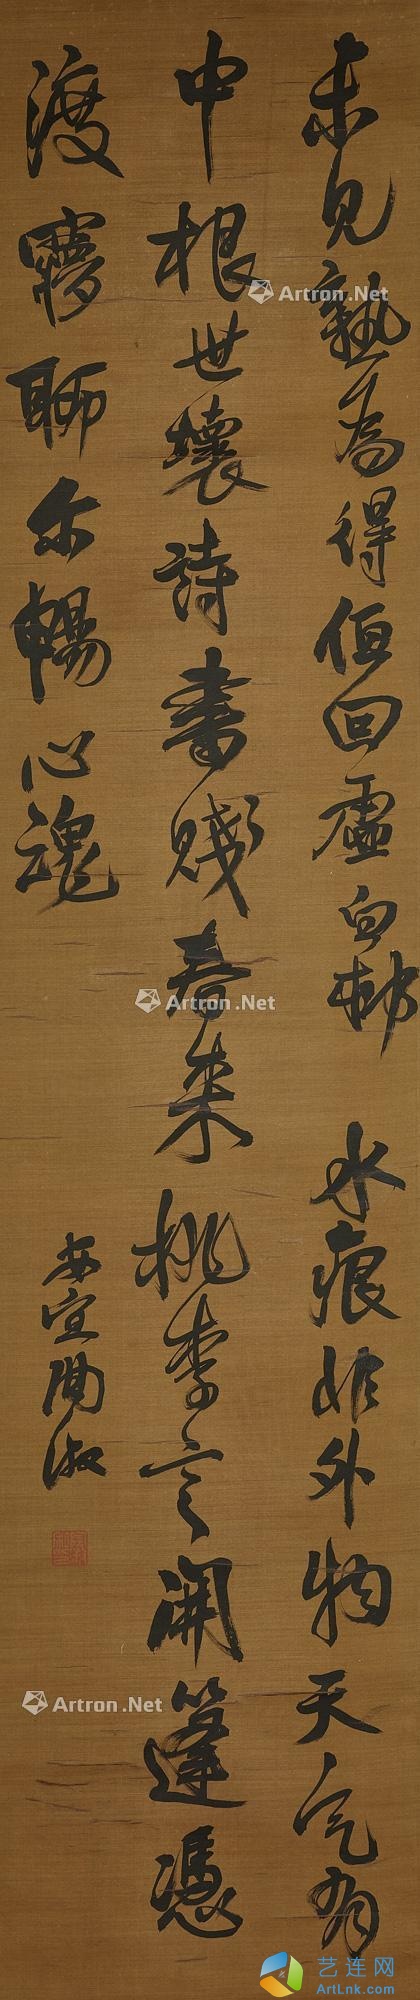 未見熟為得但回虛白村水痕非外物天氣有
中根世壞詩書賤春來桃李言開篷憑
渡聊尔暢心魂
安宜陶淑
Artron.Net
Artron.Net
Artron.Net
艺连网
ArtLnk.com